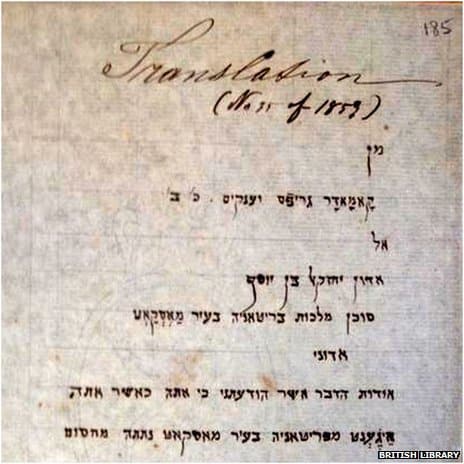 185
Translation
(No of 1859)
מן
קָאמָאדָר גריפס וענקיס . כ' ב'
אל
אדון יחזקל בן יוסף
סוכן מלכות בריטאניה בעיר מַאסְקָאט
אדוני
אודות הדבר אשר הודעתני כי אתה כאשר אתה,
מבריטאניה בעיר מאסקאט נתתה מחסום
BRITISH LIBRARY